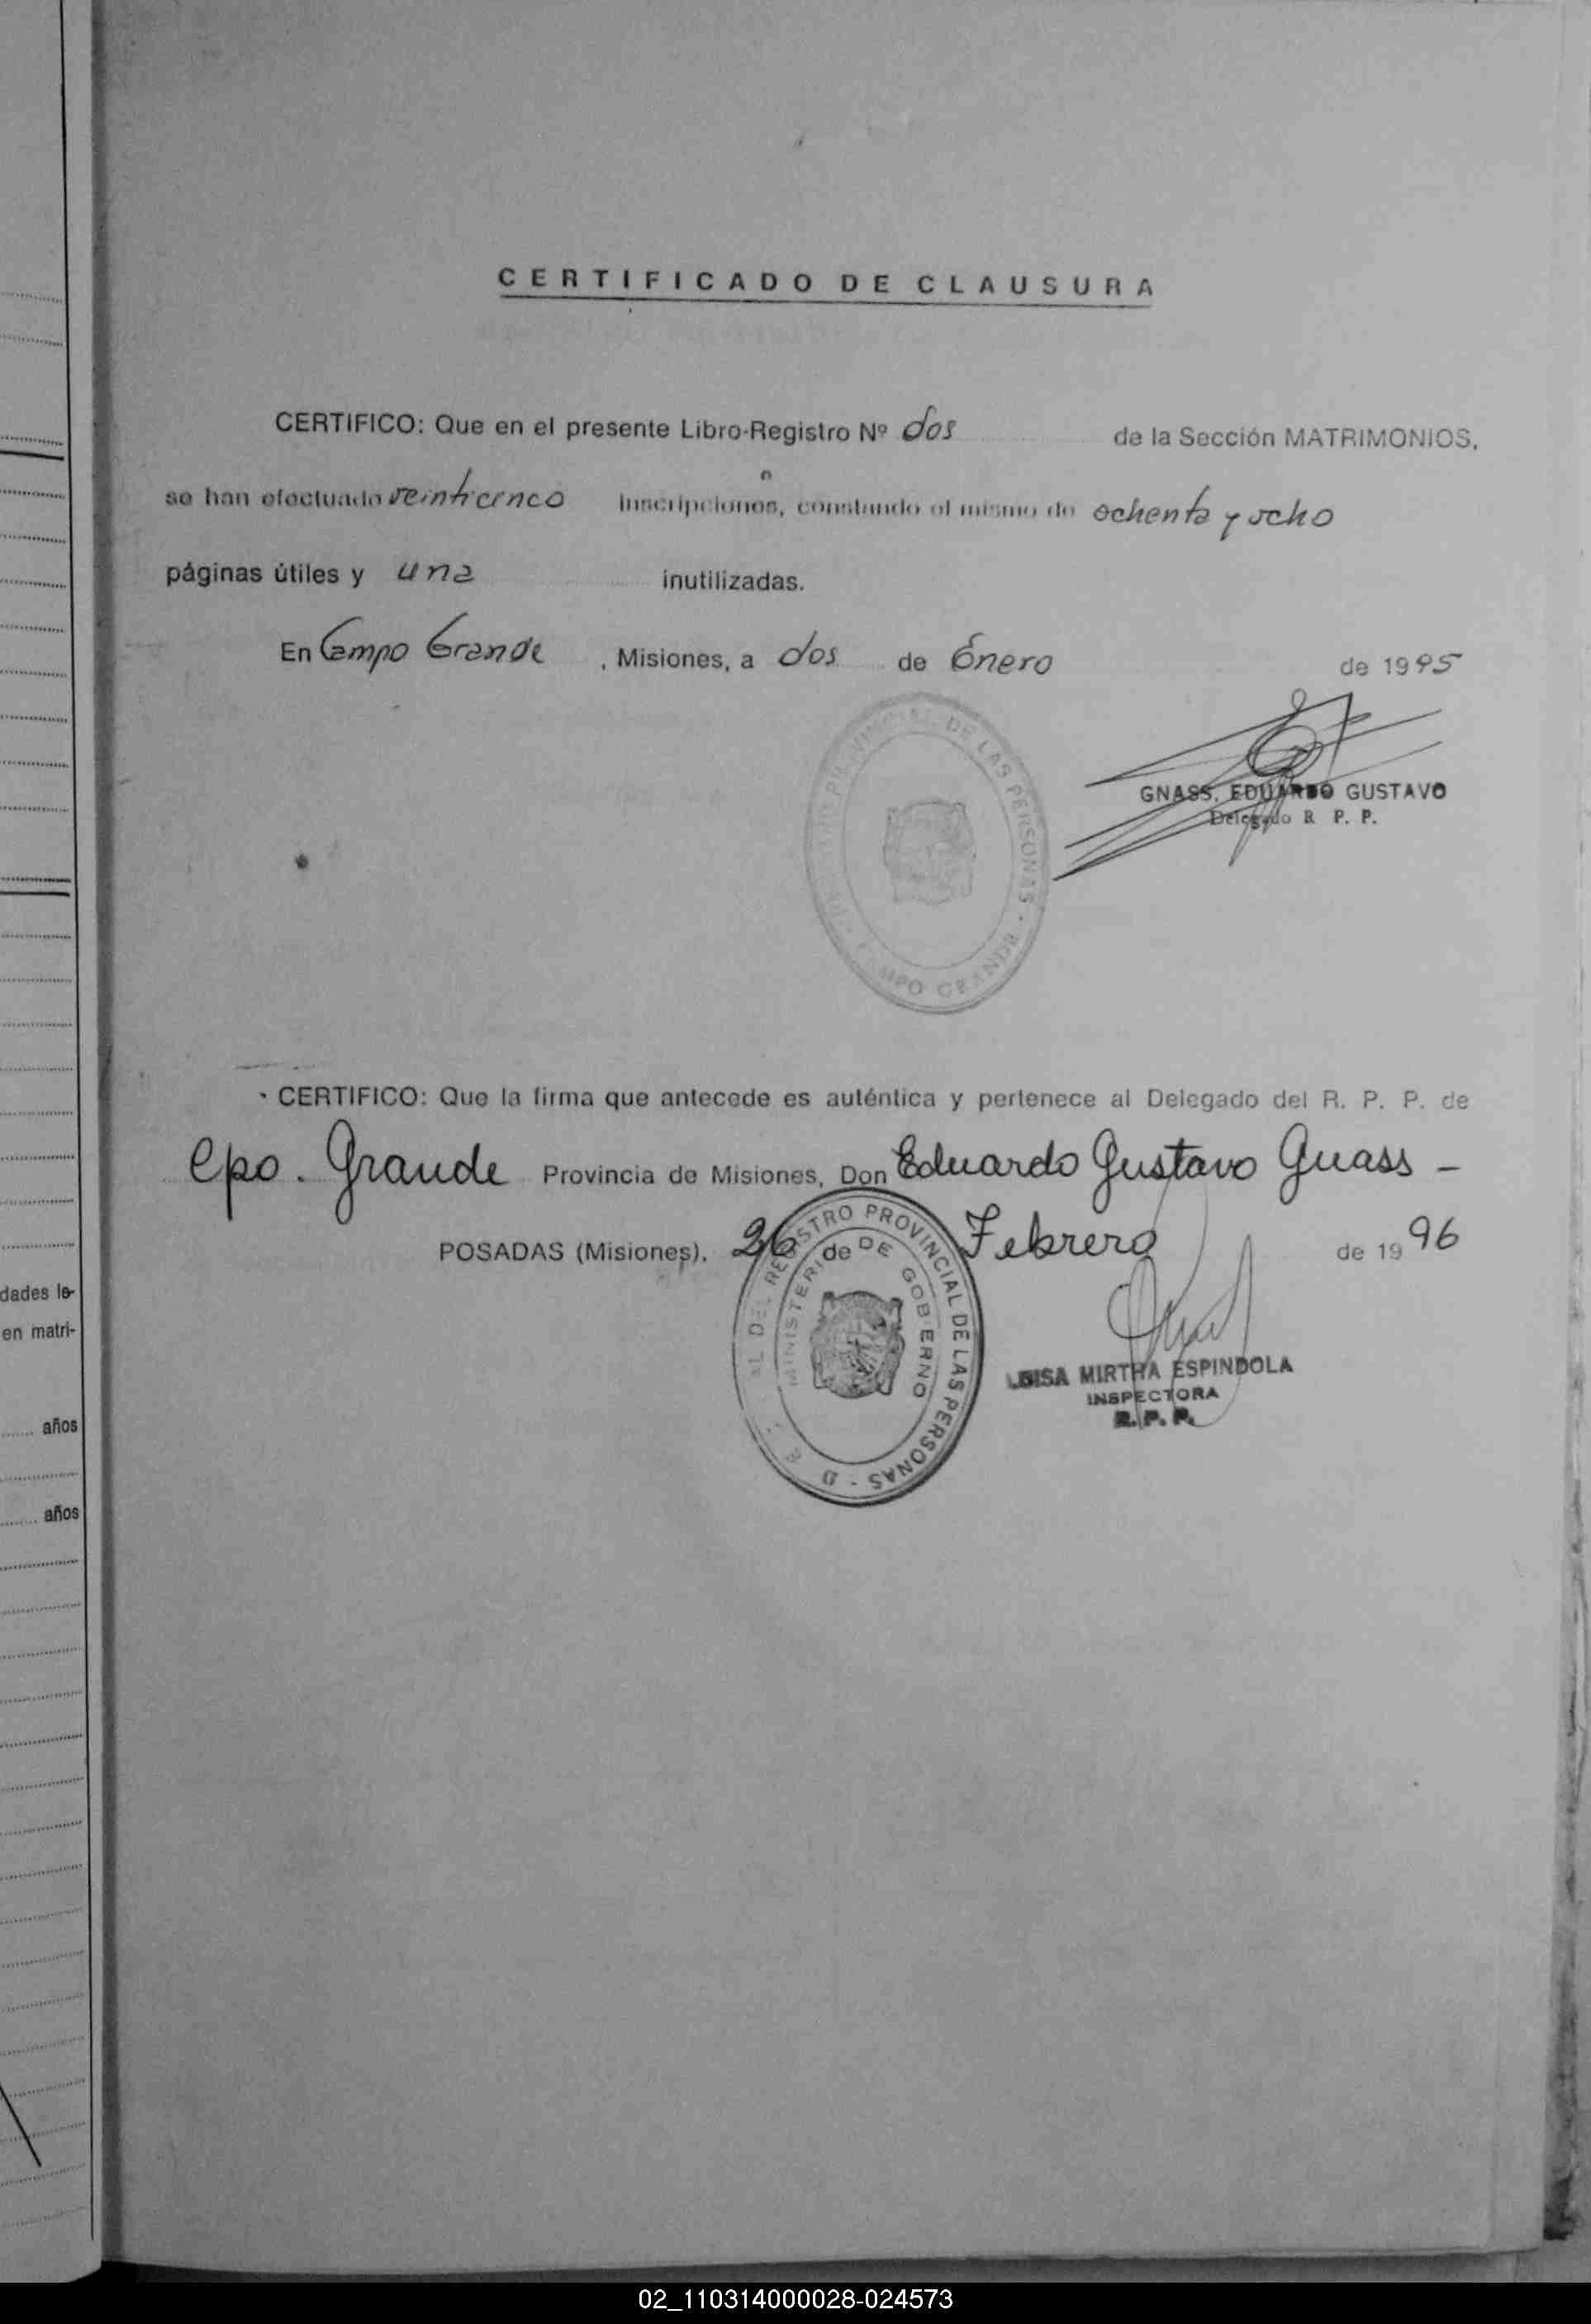 CERTIFICADO DE CLAUSURA
CERTIFICO: Que en el presente Libro-Registro Nº dos de la Sección MATRIMONIOS,
se han efectuado veinticinco inscripciones, constando el mismo de ochenta y ocho
páginas útiles y una inutilizadas.
En Campo Grande, Misiones, a dos de Enero de 1995
REGISTRO PROVINCIAL DE LAS PERSONAS - CAMPO GRANDE
GNASS, EDUARDO GUSTAVO
Delegado R P. P.
CERTIFICO: Que la firma que antecede es auténtica y pertenece al Delegado del R. P. P. de
Cpo. Grande Provincia de Misiones, Don Eduardo Gustavo Gnass -
POSADAS (Misiones), 26 de Febrero de 1996
DEL REGISTRO PROVINCIAL DE LAS PERSONAS
MINISTERIO DE GOBIERNO
LUISA MIRTHA ESPINDOLA
INSPECTORA
R. P. P.
dades le-
en matri-
años
años
02_110314000028-024573